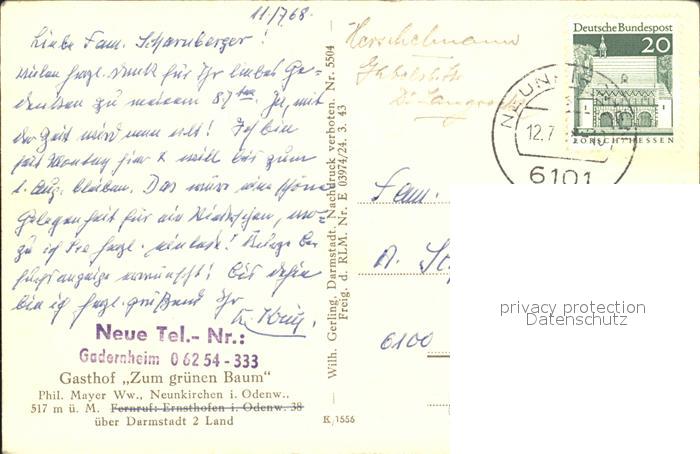 11./7.68.
Liebe Fam. Scharnberger!
Vielen herzl. Dank für Ihr liebes Ge-
denken zu meinem 87ten. Ja, mit
der Zeit wird man alt! Ich bin
seit Montag hier & will bis zum
1. Aug. bleiben. Das wäre eine schöne
Gelegenheit für ein Wiedersehen, wo-
zu ich Sie herzl. einlade! Kurze Be-
suchsanzeige erwünscht! Bis dahin
bin ich herzl. grüßend Ihr
Neue Tel.- Nr.:
Gadernheim 0 62 54 - 333
Gasthof „Zum grünen Baum"
Phil. Mayer Ww., Neunkirchen i. Odenw.,
517 m ü. M. Fernruf: Ernsthofen i. Odenw. 38
über Darmstadt 2 Land
K 1556
Wilh. Gerling, Darmstadt. Nachdruck verboten. Nr. 5504
Freig. d. RLM. Nr. E 03974/24. 3. 43
Herschelmann
Deutsche Bundespost
20
LORSCH/HESSEN
NEUN
12.7
6101
Fam.
6100
privacy protection
Datenschutz